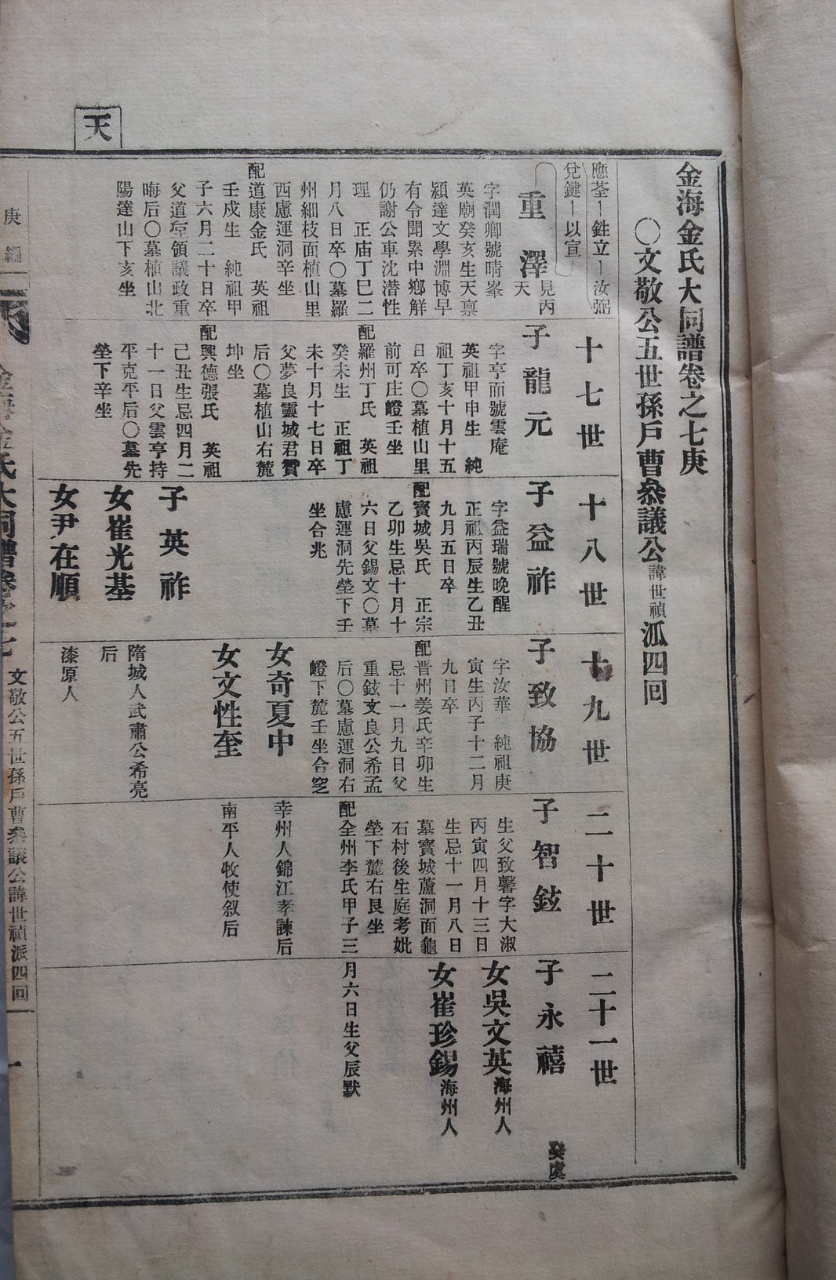 天
金海金氏大同譜卷之七庚
〇文敬公五世孫戶曹參議公諱世禎派四囘
應荃ー鉎立ー汝弼
兌鍵ー以宣
重澤見丙天
字潤卿號晴峯
英廟癸亥生天稟
穎達文學淵博早
有令聞累中鄉解
仍謝公車沈潜性
理 正庙丁巳二
月八日卒〇墓羅
州細枝面植山里
西慮運洞辛坐
配道康金氏 英祖
壬戌生 純祖甲
子六月二十日卒
父道 領議政重
晦后〇墓植山北
陽達山下亥坐
十七世
子龍元
字亨而號雲庵
英祖甲申生 純
祖丁亥十月十五
日卒〇墓植山里
前可庄嶝壬坐
配羅州丁氏 英祖
癸未生 正祖丁
未十月十七日卒
父夢良靈城君贊
后〇墓植山右麓
坤坐
配興德張氏 英祖
己丑生忌四月二
十一日父雲亨持
平克平后〇墓先
塋下辛坐
十八世
子益祚
字益瑞號晚醒
正祖丙辰生乙丑
九月五日卒
配寶城吳氏 正宗
乙卯生忌十月十
六日父錫文〇墓
慮運洞先塋下壬
坐合兆
子英祚
女崔光基
女尹在順
十九世
子致協
字汝華 純祖庚
寅生丙子十二月
九日卒
配晋州姜氏辛卯生
忌十一月九日父
重鉉文良公希孟
后〇墓慮運洞右
嶝下麓壬坐合窆
女奇夏中
女文性奎
隋城人武肅公希亮
后
漆原人
二十世
子智鉉
生父致馨字大淑
丙寅四月十三日
生忌十一月八日
墓寶城蘆洞面龜
石村後生庭考妣
塋下麓右艮坐
配全州李氏甲子三
幸州人錦江孝諫后
南平人牧使叙后
二十一世
子永禧
女吳文英海州人
女崔珍錫海州人
月六日生父辰默
庚編
金海金氏大同譜卷之七
文敬公五世孫戶曹參議公諱世禎派四囘
一